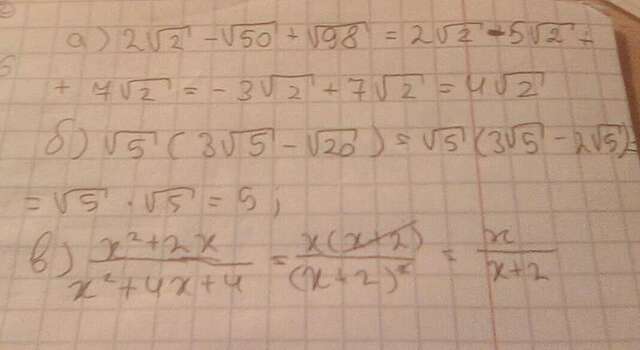 а) 2√2 - √50 + √98 = 2√2 - 5√2 +
+ 7√2 = -3√2 + 7√2 = 4√2
б) √5 (3√5 - √20) = √5 (3√5 - 2√5) =
= √5 · √5 = 5;
в) (x² + 2x)/(x² + 4x + 4) = x(x+2)/(x+2)² = x/(x+2)